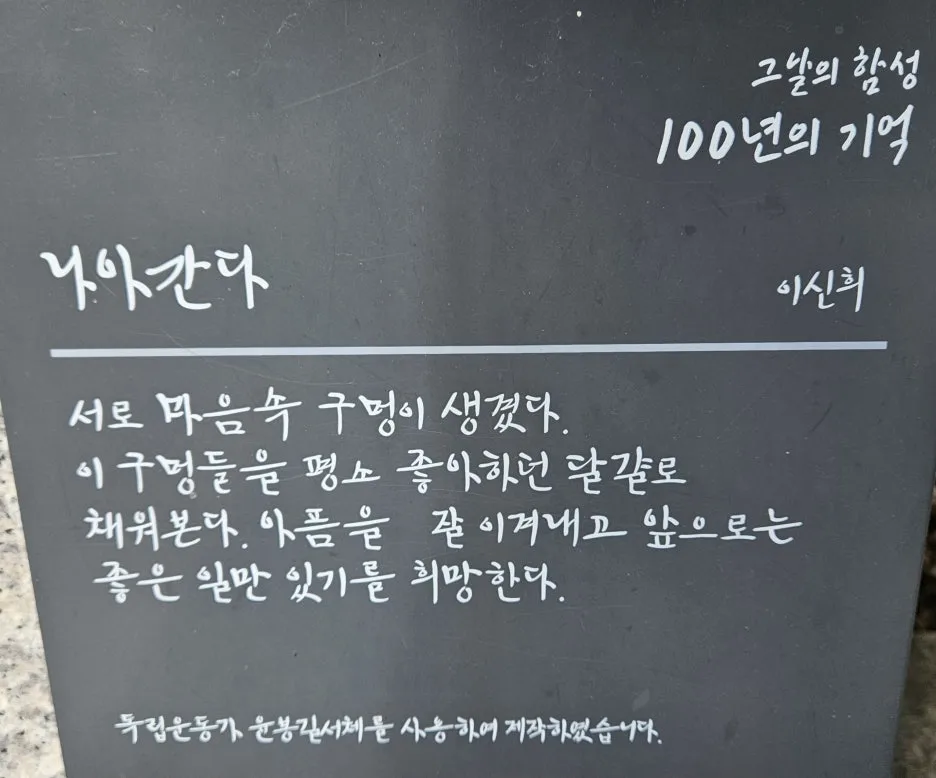 그날의 함성
100년의 기억
나아간다
이신희
서로 마음속 구멍이 생겼다.
이 구멍들을 평소 좋아하던 달걀로
채워본다. 아픔을 잘 이겨내고 앞으로는
좋은 일만 있기를 희망한다.
독립운동가 윤봉길서체를 사용하여 제작하였습니다.